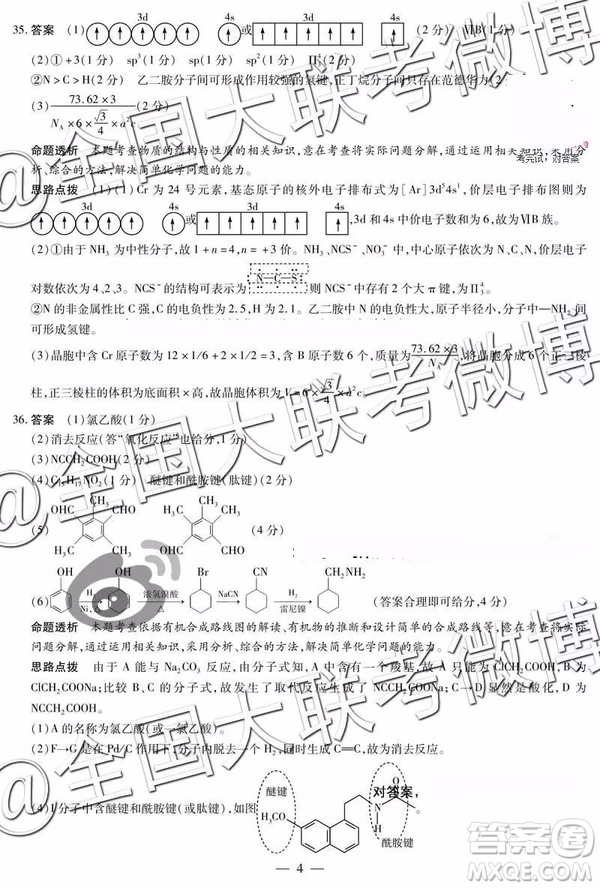 35.答案 (1) 3d 4s 或 3d 4s ⅥB(2分)
(2)①+3(1分) sp(1分) sp²(1分) sp³(1分)
②N>C>H(2分) 乙二胺分子间可形成作用较强的氢键,正丁烷分子间只存在范德华力(2
(3) 73.62×3 / N_A×6×√3/4×a²c (2分)
命题透析 本题考查物质的结构与性质的相关知识,意在考查将实际问题分解,通过运用相关知识,采用分
析、综合的方法,解决简单化学问题的能力。
考完试,对答案
思路点拨 (1)(1)Cr为24号元素,基态原子的核外电子排布式为[Ar]3d⁵4s¹,价层电子排布图则为
或 ,3d和4s中价电子数和为6,故为ⅥB族。
(2)①由于NH₃为中性分子,故1+n=4,n=+3。价层电子对互斥理论,NCS⁻、NO₃⁻中心原子依次为N、C、N,价层电子
对数依次为4、2、3。NCS⁻的结构可表示为 N—C—S 则NCS⁻中存在2个大π键,为Π₃⁴。
②N的非金属性比C强,C的电负性为2.5,H为2.1。乙二胺中N电负性大,原子半径小,分子中—NH₂间
可形成氢键。
(3)晶胞中含Cr原子数为12×1/6+2×1/2+3=6,晶胞的质量为 73.62×3 / N_A g,将晶胞分解为6个正三棱
柱,正三棱柱的体积为底面积×高,故晶胞的体积为V=6×√3/4×a²c。
36.答案 (1)氯乙酸(1分)
(2)消去反应(答“氧化反应”也给分,1分)
(3)NCCH₂COOH(2分)
(4)C₁₅H₁₇NO₂(1分) 醚键和酰胺键(肽键)(2分)
(5) CH₃ OHC CHO H₃C CH₃ OHC CH₃ CH₃ H₃C CHO (4分)
(6) OH H₂ Ni,△ OH 浓氢溴酸 △ Br NaCN CN H₂ 雷尼镍 CH₂NH₂ (答案合理即可给分,4分)
命题透析 本题考查依据有机合成路线图的解读、有机物的推断和设计简单的合成路线,意在考查将实际
问题分解,通过运用相关知识,采用分析、综合的方法,解决简单化学问题的能力。
思路点拨 由于A能与Na₂CO₃反应,由A的分子式,故其中含有一个羧基,故A为ClCH₂COOH,B为
ClCH₂COONa,由C的分子式,故发生了取代反应生成了NCCH₂COONa,C→D显然是酸化,D为
NCCH₂COOH。
(1)A的名称为氯乙酸(或一氯乙酸)。
(2)F→G是在Pd/C作用下,分子内脱去一个H₂,同时生成C═C,故为消去反应。
(4)I分子中含醚键和酰胺键(或肽键),如图 醚键 H₃CO N H O 酰胺键 。
对答案,
— 4 —
@全国大联考微博
@全国大联考微博
@全国大联考微博
答案圈
MXQE.COM